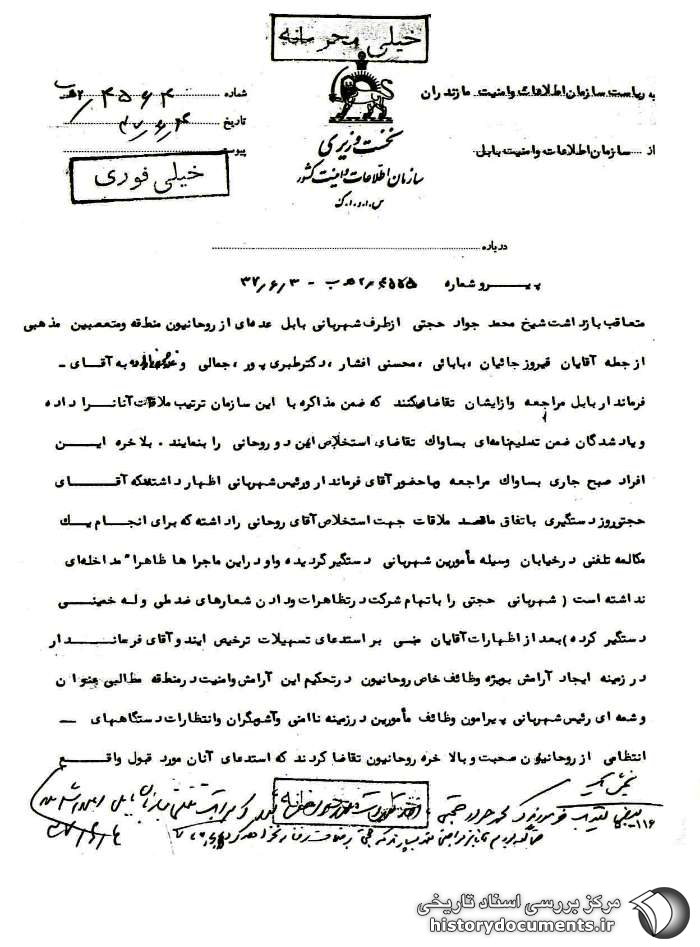 خیلی محرمانه
به ریاست سازمان اطلاعات وامنیت مازندران
شماره ۴۵۶۴
از سازمان اطلاعات وامنیت بابل
تاریخ ۳۷/۶/۴
پیوست
نخست وزیری
سازمان اطلاعات وامنیت کشور
س.ا.و.ا.ک
خیلی فوری
درباره
پیـــرو شماره ۳۷/۶/۳ -
متعاقب بازداشت شیخ محمد جواد حجتی ازطرف شهربانی بابل عده‌ای از روحانیون منطقه ومتعصبین مذهبی
ازجمله آقایان فیروزجائیان ، بابائی ، محسنی افشار ، دکترطبری پور ، جمالی و به آقای -
فرماندار بابل مراجعه وازایشان تقاضا میکنند که ضمن مذاکره با این سازمان ترتیب ملاقات آنانرا داده
و یادشدگان ضمن تسلیم نامه‌ای بساواک تقاضای استخلاص این دو روحانی را بنمایند . بلاخره ایـن
افراد صبح جاری بساواک مراجعه وباحضور آقای فرماندار ورئیس شهربانی اظهار داشتند که آقـــای
حجتی روز دستگیری باتفاق ما قصد ملاقات جهت استخلاص آقای روحانی راداشته که برای انجام یک
مکالمه تلفنی درخیابان وسیله مأمورین شهربانی دستگیر گردیده واو دراین ماجرا ها ظاهرا" مداخله‌ای
نداشته است ( شهربانی حجتی را باتهام شرکت درتظاهرات ودادن شعارهای ضدملی وله خمینـــی
دستگیر کرده ) بعد از اظهارات آقایان مبنی بر استدعای تسهیلات ترخیص ایند وآقای فرمانـــدار
در زمینه ایجاد آرامش بویژه وظائف خاص روحانیون درتحکیم این آرامش وامنیت درمنطقه مطالبی عنوان
وشمه ای رئیس شهربانی پیرامون وظائف مأمورین درزمینه ناامنی وآشوبگران وانتظارات دستگاههای —
انتظامی از روحانیون صحبت و بالاخره روحانیون تقاضا کردند که استدعای آنان مورد قبول واقـــع
۱۱۶-۵
مرکز بررسی اسناد تاریخی
historydocuments.ir